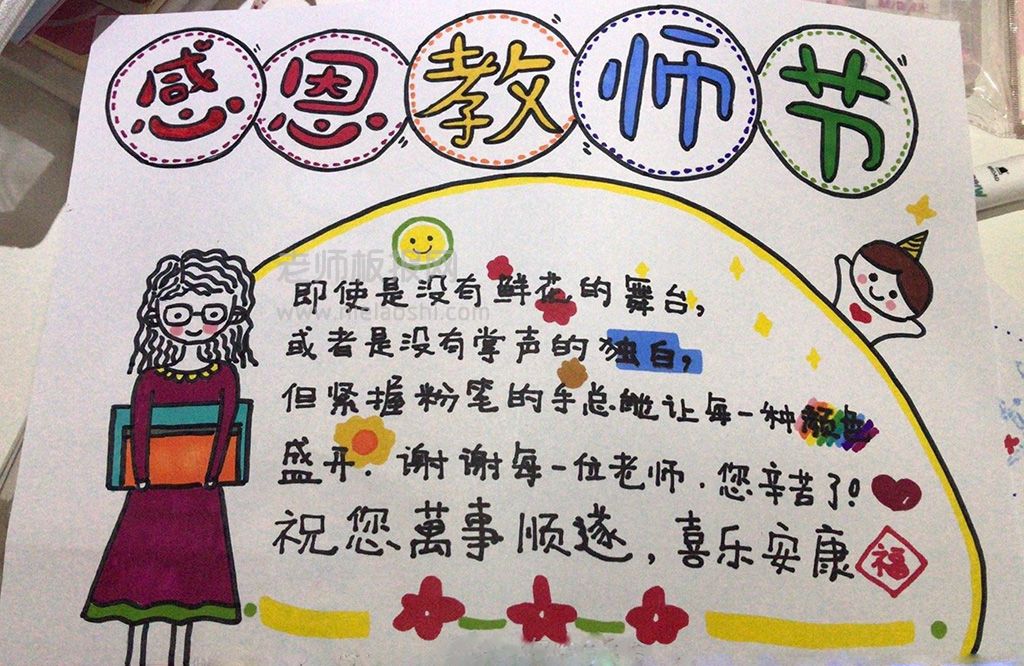 感恩教师节
老师板报网
www.melaoshi.com
即使是没有鲜花的舞台，
或者是没有掌声的独白，
但紧握粉笔的手总能让每一种颜色
盛开．谢谢每一位老师．您辛苦了！
祝您萬事顺遂，喜乐安康
福